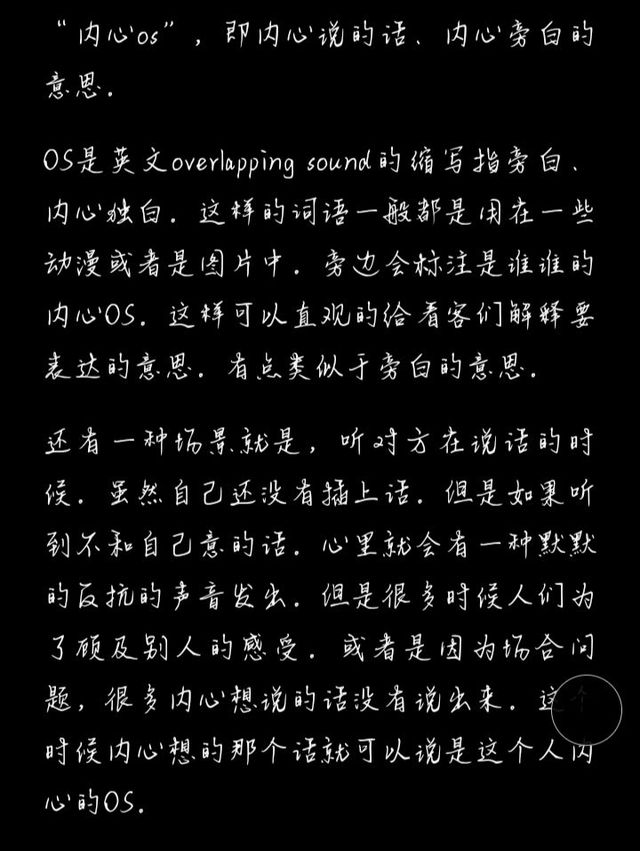 “内心os”，即内心说的话、内心旁白的
意思.
OS是英文overlapping sound的缩写指旁白、
内心独白. 这样的词语一般都是用在一些
动漫或者是图片中. 旁边会标注是谁谁的
内心OS. 这样可以直观的给看客们解释要
表达的意思. 有点类似于旁白的意思.
还有一种场景就是，听对方在说话的时
候. 虽然自己还没有插上话. 但是如果听
到不和自己意的话. 心里就会有一种默默
的反抗的声音发出. 但是很多时候人们为
了顾及别人的感受. 或者是因为场合问
题，很多内心想说的话没有说出来. 这个
时候内心想的那个话就可以说是这个人内
心的OS.